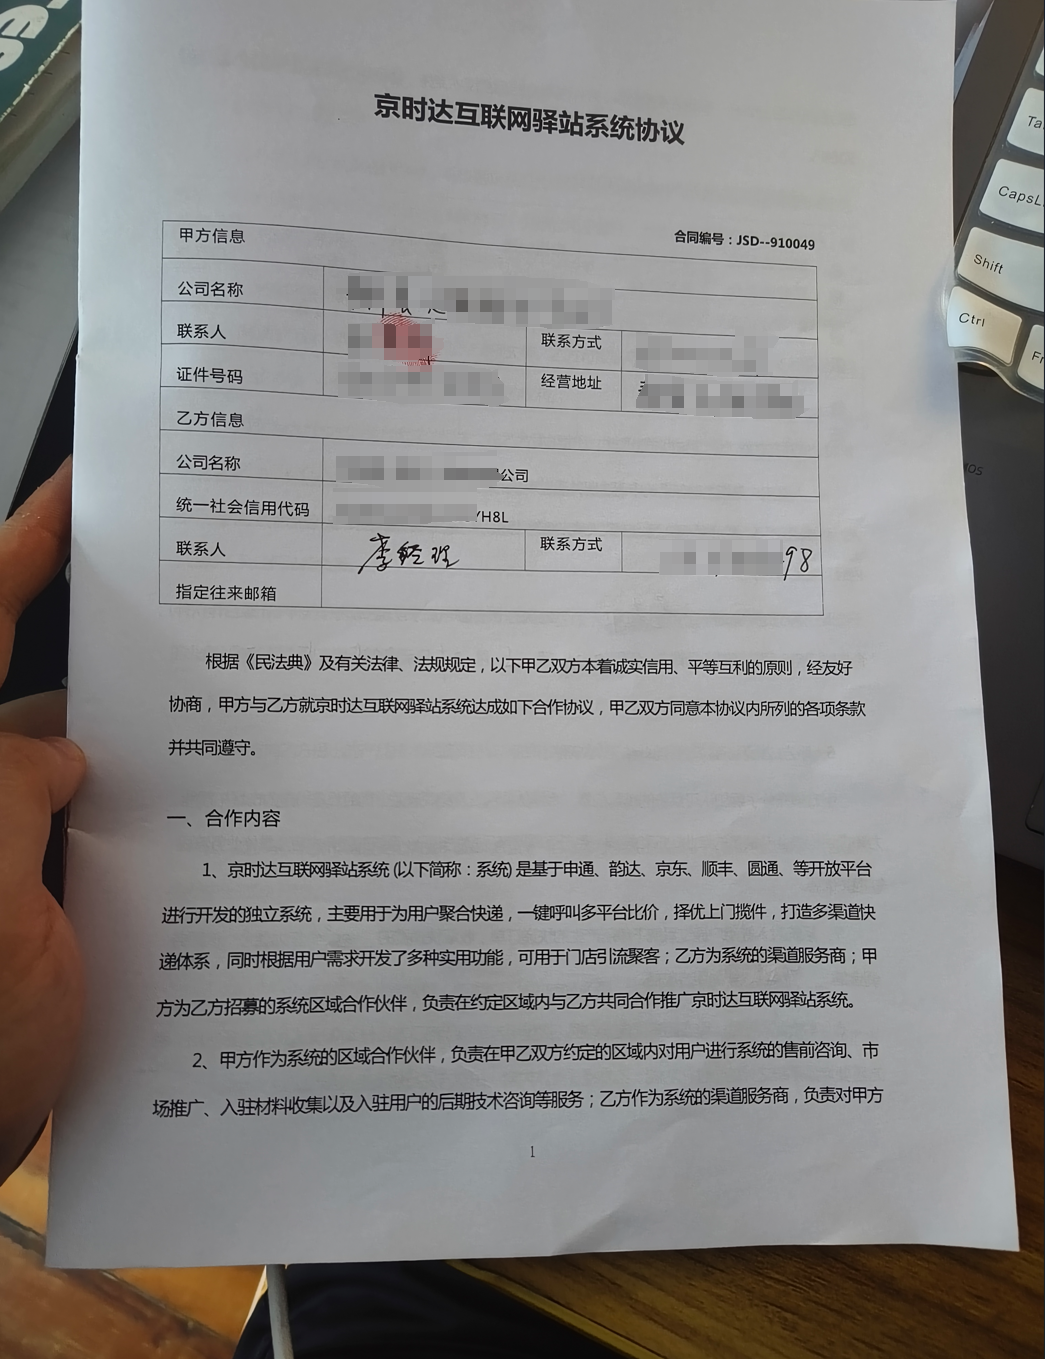 京时达互联网驿站系统协议
合同编号：JSD--910049
甲方信息
公司名称
联系人
联系方式
证件号码
经营地址
乙方信息
公司名称 公司
统一社会信用代码 YH8L
联系人 李经理 联系方式 98
指定往来邮箱
根据《民法典》及有关法律、法规规定，以下甲乙双方本着诚实信用、平等互利的原则，经友好
协商，甲方与乙方就京时达互联网驿站系统达成如下合作协议，甲乙双方同意本协议内所列的各项条款
并共同遵守。
一、合作内容
1、京时达互联网驿站系统 (以下简称：系统) 是基于申通、韵达、京东、顺丰、圆通、等开放平台
进行开发的独立系统，主要用于为用户聚合快递，一键呼叫多平台比价，择优上门揽件，打造多渠道快
递体系，同时根据用户需求开发了多种实用功能，可用于门店引流聚客；乙方为系统的渠道服务商；甲
方为乙方招募的系统区域合作伙伴，负责在约定区域内与乙方共同合作推广京时达互联网驿站系统。
2、甲方作为系统的区域合作伙伴，负责在甲乙双方约定的区域内对用户进行系统的售前咨询、市
场推广、入驻材料收集以及入驻用户的后期技术咨询等服务；乙方作为系统的渠道服务商，负责对甲方
1
Ta
CapsL
Shift
Ctrl